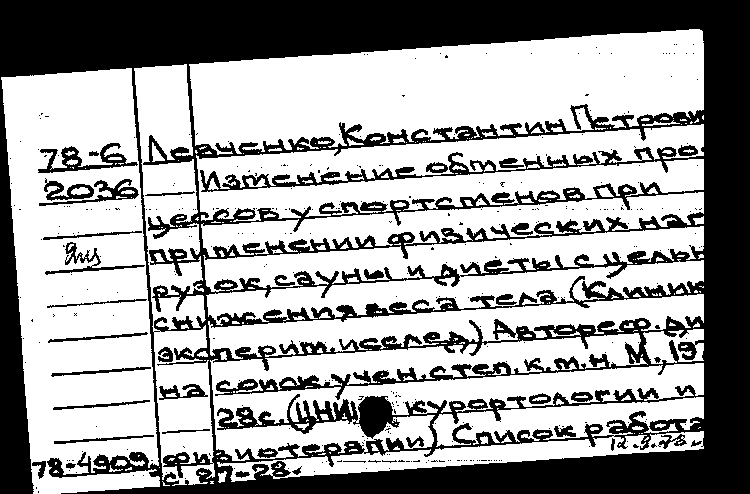 78-6 Левченко, Константин Петрови
2036 Изменение обменных про-
цессов у спортсменов при
применении физических наг
рузок, сауны и диеты с целью
снижения веса тела. (Клиник
эксперим. исслед.) Автореф. ди
на соиск. учен. степ. к. м. н. М., 197
28с. (ЦНИИ курортологии и
физиотерапии). Список работа
78-4909 с. 27-28.